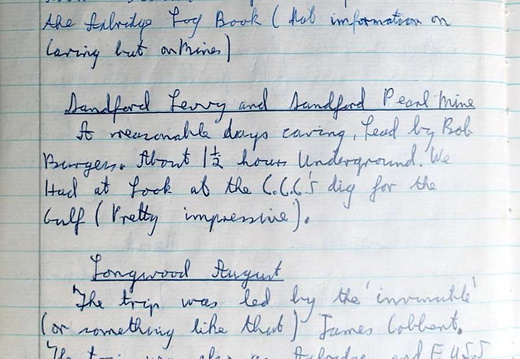 the Axbridge Log Book (Not information on
Caving but on Mines)
Sandford Levvy and Sandford Pearl Mine
A reasonable days caving, Lead by Bob
Burgess. About 1½ hours Underground. We
Had at Look at the C.C.C's dig for the
Gulf (Pretty impressive).
Longwood August
The trip was led by the 'invinsible'
(or something like that) James Cobbett.
The trip was also an Axbridge and